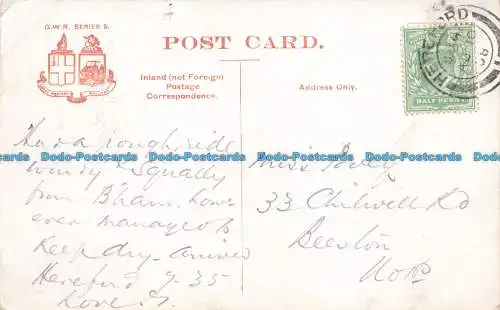 G.W.R. SERIES 5.
POST CARD.
HEREFORD
Inland (not Foreign)
Postage
Correspondence.
Address Only.
HALF PENNY
Had a rough ride
windy & Squally
from B'ham. how
ever managed to
Keep dry - arrived
Hereford 7-35
Love
Miss
33 Chilwell Rd
Beeston
Notts
Dodo-Postcards Dodo-Postcards Dodo-Postcards Dodo-Postcards
Dodo-Postcards Dodo-Postcards Dodo-Postcards Dodo-Postcards